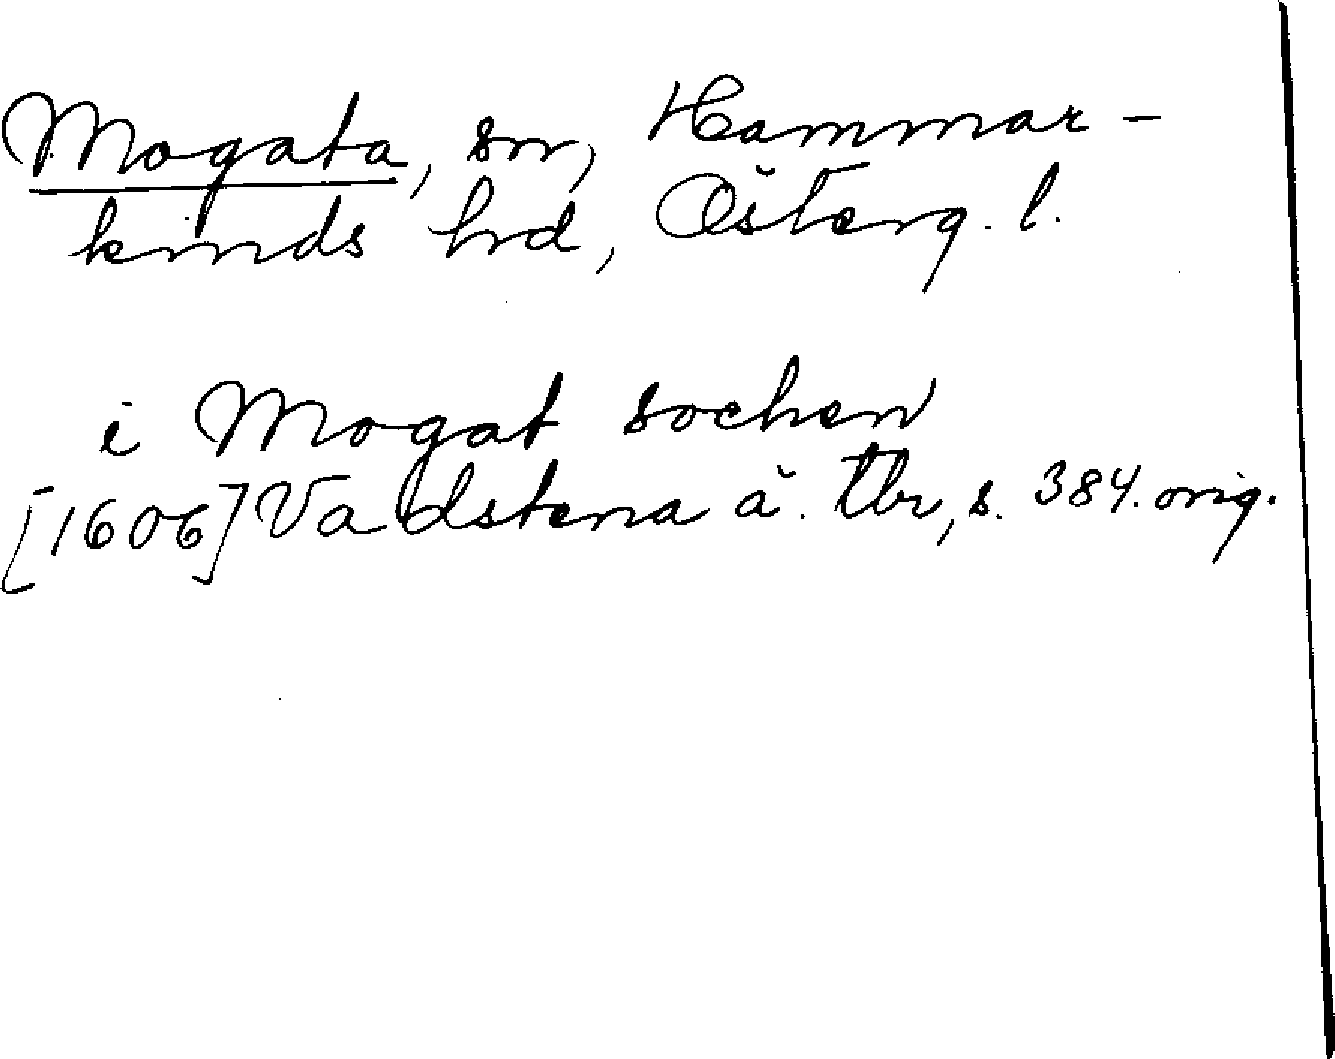 Mogata, sn, Hammar-
kinds hrd, Österg. l.
i Mogat sochen
[1606] Vadstena ä. tbr, s. 384. orig.